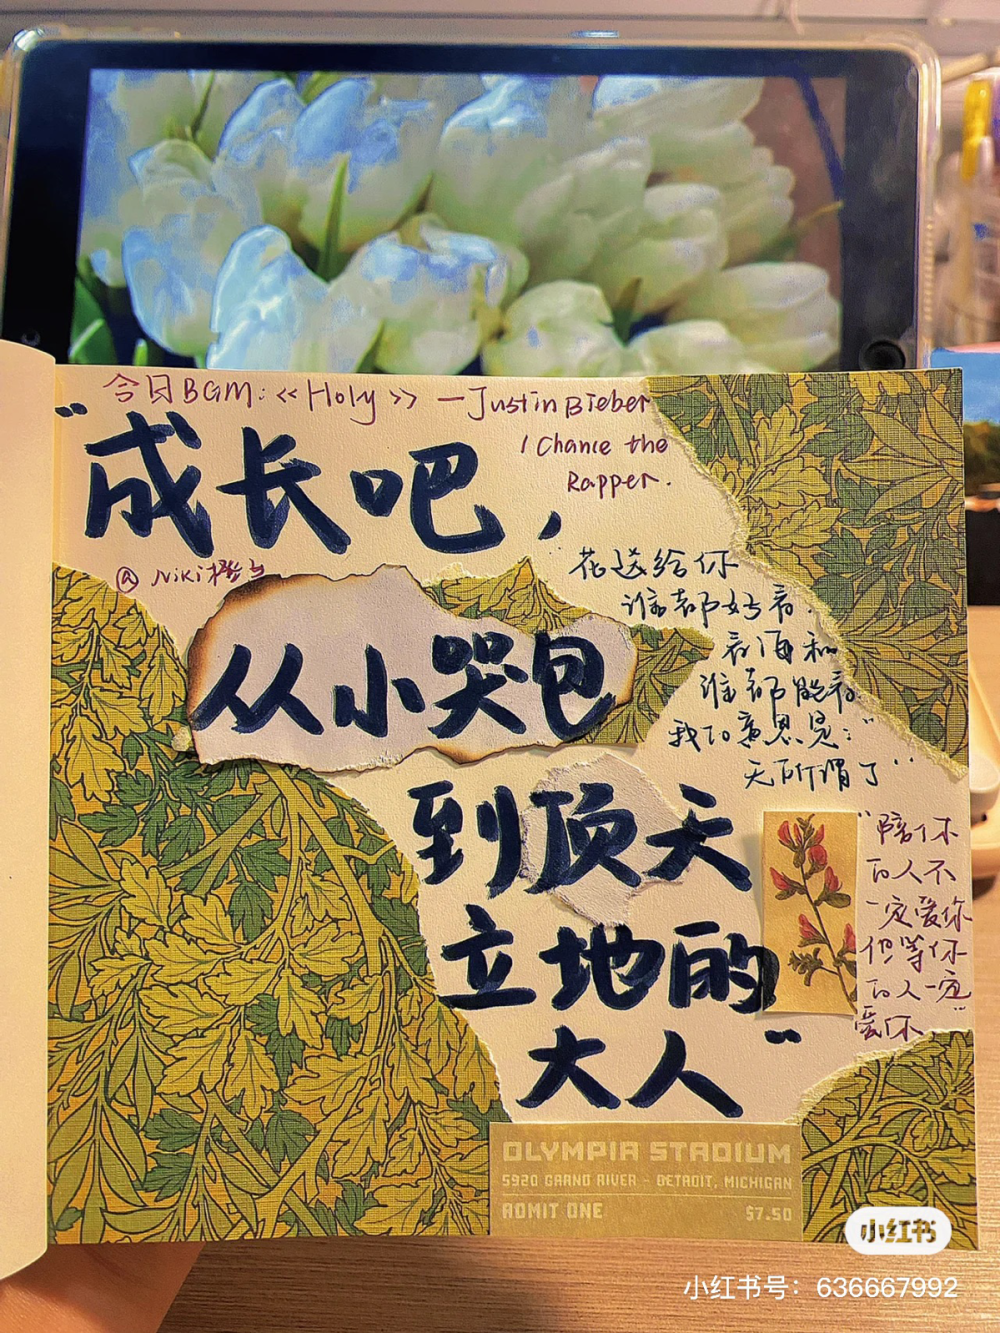 今日BGM:《Holy》—Justin Bieber
/ Chance the
Rapper.
"成长吧,
@Niki橙
从小哭包
到顶天
立地的
大人"
花送给你
谁都好看.
表面和
谁都能看
我的意思是:"
无所谓了"
"陪你
的人不
一定爱你
但等你
的人一定
爱你"
OLYMPIA STADIUM
5920 GRAND RIVER - DETROIT, MICHIGAN
ADMIT ONE
$7.50
小红书
小红书号：636667992